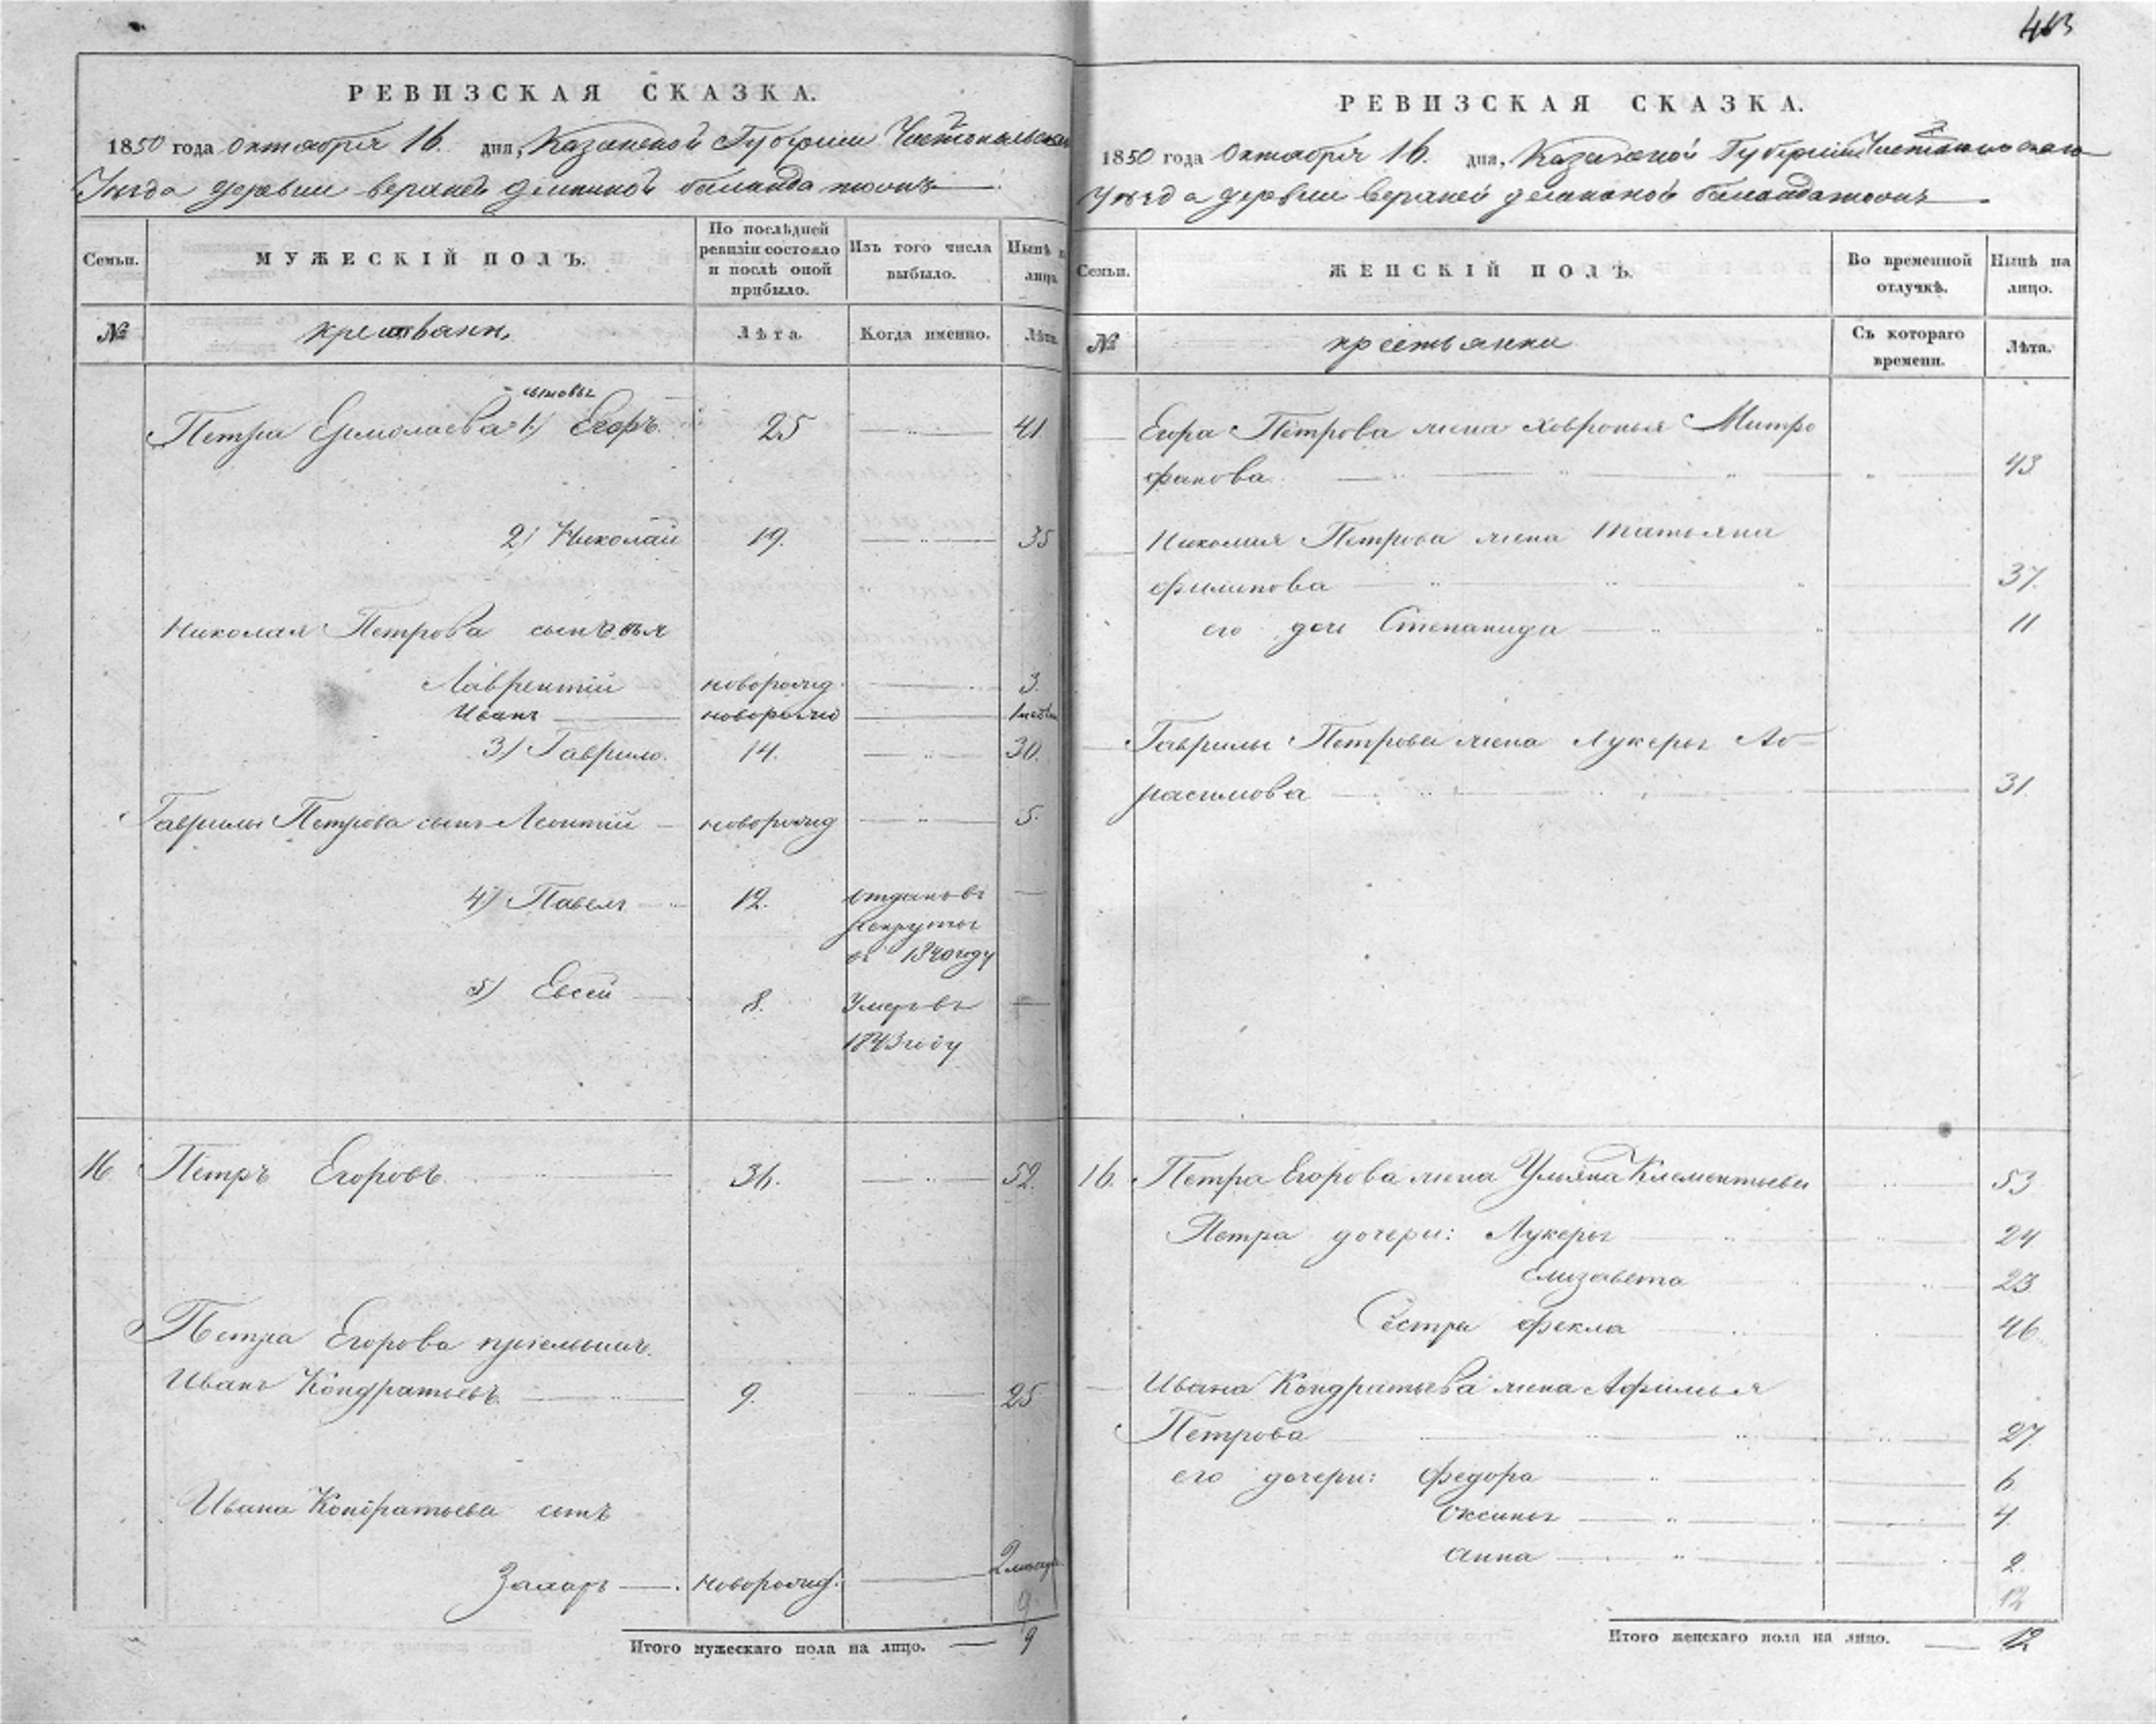 403
РЕВИЗСКАЯ СКАЗКА.
1850 года Октября 16. дня, Казанской Губернии Чистопольскаго
Уезда деревни верхней
Семьи.
МУЖЕСКІЙ ПОЛЪ.
По послѣдней ревизіи состояло и послѣ оной прибыло.
Изъ того числа выбыло.
Нынѣ на лицо.
№
крестьяни
Лѣта.
Когда именно.
Лѣта.
сыновья
Петра Ермолаева 1) Егоръ. 25 41
2) Николай 19. 35
Николая Петрова сыновья
Лаврентій новорожд. 3.
Иванъ новорожд
3) Гаврило. 14. 30.
Гаврилы Петрова сынъ Леонтій новорожд 5.
4) Павелъ 12. отданъ въ
рекруты
въ 1840 году
5) Евсей 8. Умеръ въ
1843 году
16 Петръ Егоровъ 36. 52.
Петра Егорова пріемышъ
Иванъ Кондратьевъ 9. 25
Ивана Кондратьева сынъ
Захаръ новорожд. 2 месяца
9.
Итого мужескаго пола на лицо. 9
РЕВИЗСКАЯ СКАЗКА.
1850 года Октября 16. дня, Казанской Губерніи Чистопольскаго
Уезда деревни верхней
Семьи.
ЖЕНСКІЙ ПОЛЪ.
Во временной отлучкѣ.
Нынѣ на лицо.
№
крестьянки
Съ котораго времени.
Лѣта.
Егора Петрова жена Ховронья Митро
фанова 43
Николая Петрова жена Татьяна
Филипова 37.
его дочь Степанида 11
Гаврилы Петрова жена Лукерья
расимова 31.
16. Петра Егорова жена Ульяна Клементьева 53
Петра дочери: Лукерья 24
Елизавета 23
Сестра Фекла 46
Ивана Кондратьева жена Афимья
Петрова 27
его дочери: Федора 6
Оксинья 4.
Анна 2.
12
Итого женскаго пола на лицо. 12